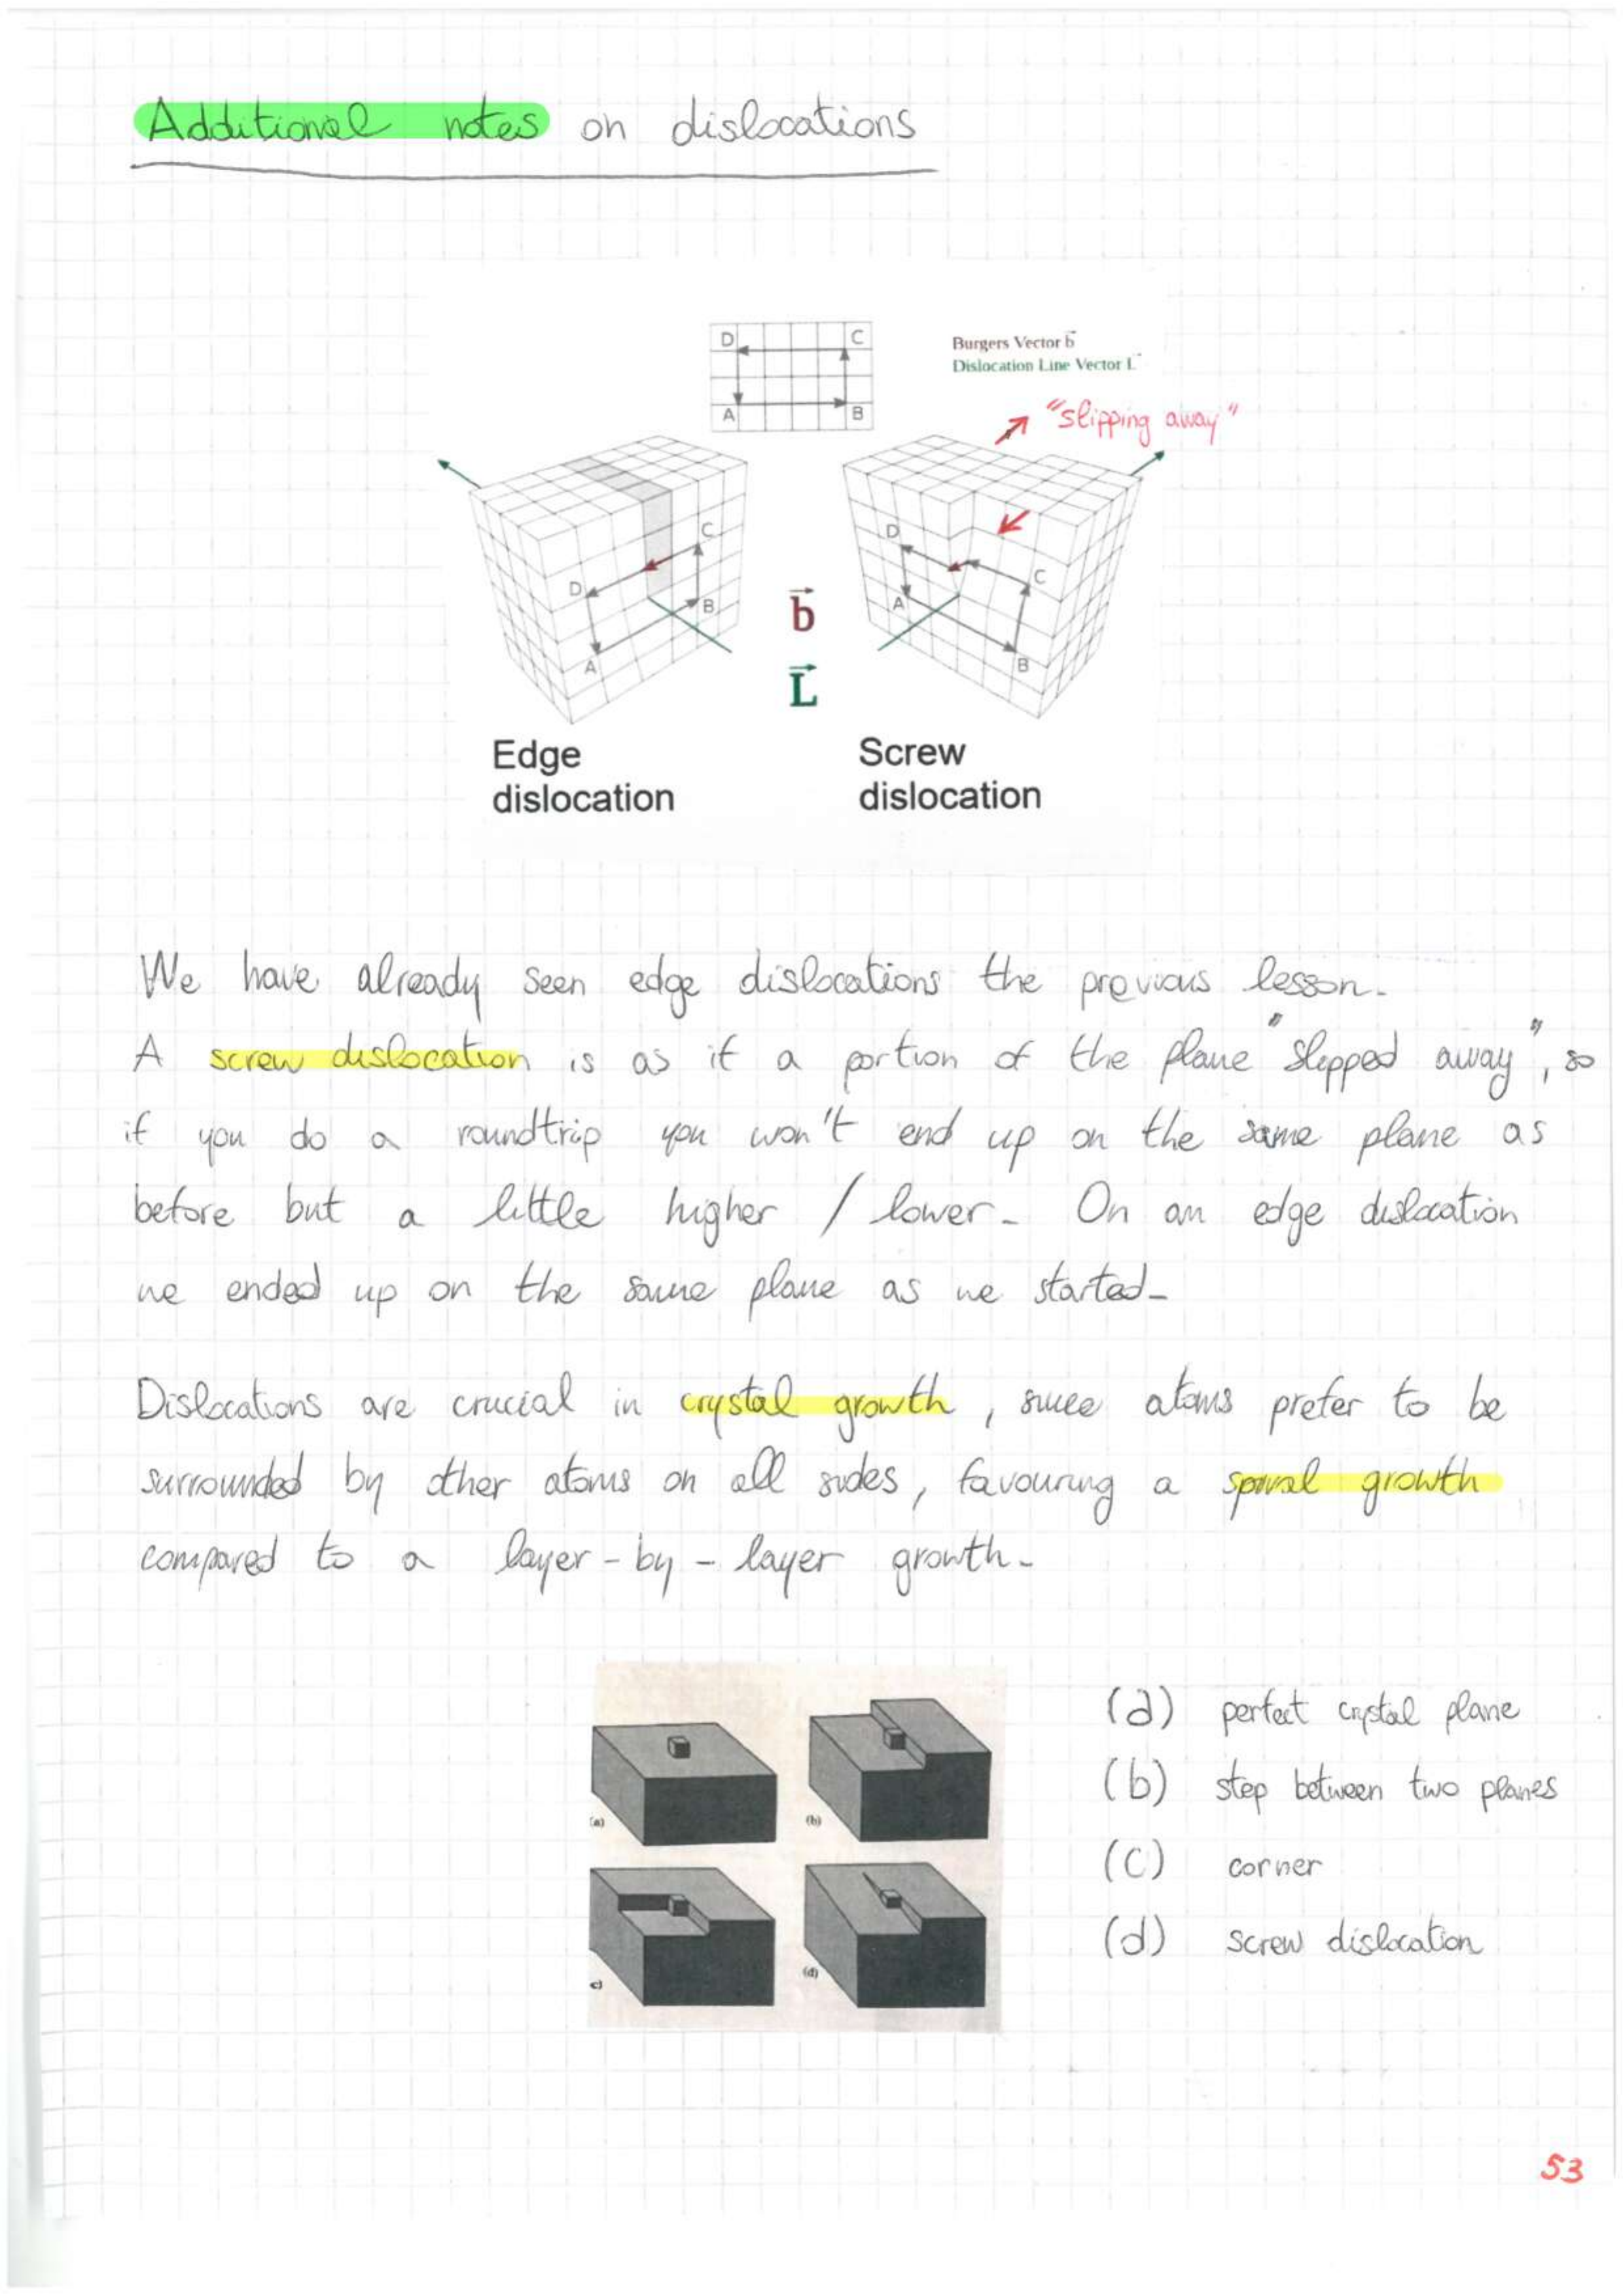 Additional notes on dislocations
D C
A B
Burgers Vector b
Dislocation Line Vector L
"slipping away"
D C
A B
b
L
D C
A B
Edge
dislocation
Screw
dislocation
We have already seen edge dislocations the previous lesson.
A screw dislocation is as if a portion of the plane "slipped away", so
if you do a roundtrip you won't end up on the same plane as
before but a little higher / lower. On an edge dislocation
we ended up on the same plane as we started.
Dislocations are crucial in crystal growth, since atoms prefer to be
surrounded by other atoms on all sides, favouring a spiral growth
compared to a layer-by-layer growth.
(a)
(b)
c)
(d)
(a) perfect crystal plane
(b) step between two planes
(c) corner
(d) screw dislocation
53